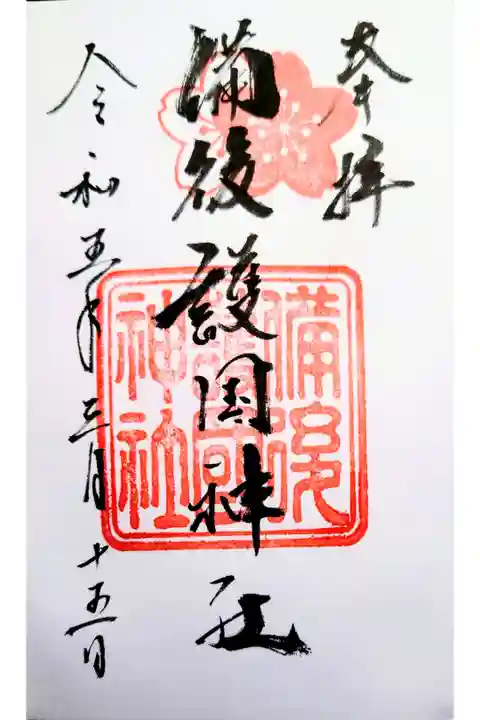 奉拝
備後護国神社
備後護国神社
令和五年三月十五日